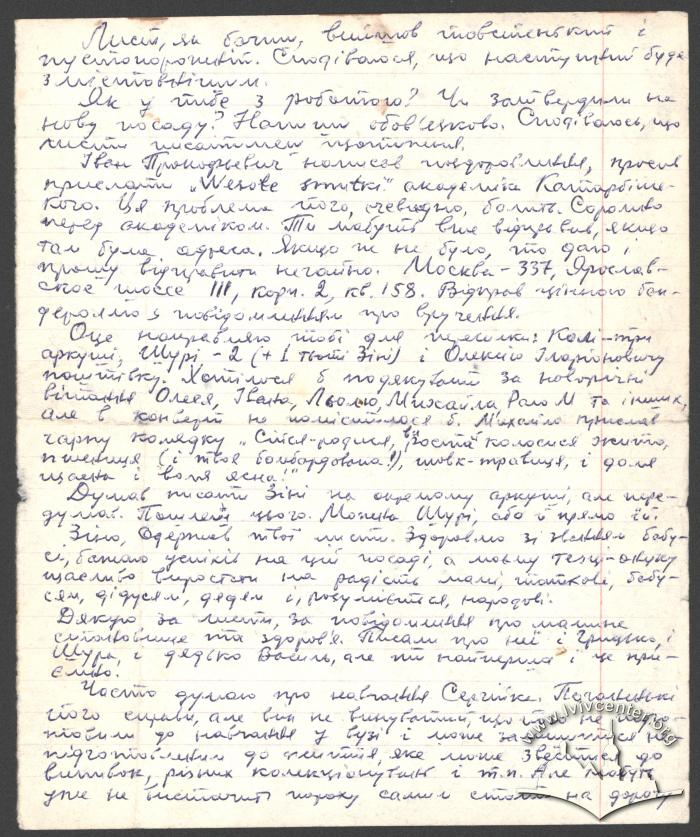 Лист, як бачиш, вийшов товстенький і
пустопорожній. Сподіваюся, що наступний буде
змістовнішим.
Як у тебе з роботою? Чи затвердили на
нову посаду? Напиши обов'язково. Сподіваюсь, що
листи писатимеш щотижня.
Іван Прокопович написав поздоровлення, просив
прислати „Wesołe smutki" академіка Катарбінсь-
кого. Ця проблема його, очевидно, болить. Соромно
перед академіком. Ти мабуть вже відіслав, якщо
там була адреса. Якщо ж не було, то даю і
прошу відправити негайно. Москва-337, Ярослав-
ское шоссе 111, корп. 2, кв. 158. Відправ цінною бан-
дероллю з повідомленням про вручення.
Оце направляю тобі для пересилки: Колі-три
аркуші, Шурі-2 (+1 тьоті Зіні) і Олексію Іларіоновичу
поштівку. Хотілося б подякувати за новорічні
вітання Олеся, Івана, Льолю, Михайла, М та інших,
але в конверт не помістилося б. Михайло прислав
гарну колядку „Сійся-родися, колосися жито,
пшениця (і твоя бомбардована!), шовк-травиця, і доля
щасна і воля ясна!"
Думав писати Зіні на окремому аркуші, але пере-
думав. Пошлеш цього. Можна Шурі, або й прямо їй.
Зіно, Одержав твої листи. Здоровлю зі званням бабу-
сі, бажаю успіхів на цій посаді, а моєму внуку
щасливо виростати на радість мамі, таткові, бабу-
сям, дідусям, дядям і, розуміється, народові.
Дякую за листи, за повідомлення про мамине
становище та здоров'я. Писали про неї і Грицько, і
Шура, і дядько Василь, але ти найперша і це при-
ємно.
Часто думаю про навчання Сергійка. Поганенькі
його справи, але він не винуватий, що його не підго-
товили до навчання у вузі і може залишитися не
підготовленим до життя, яке може звестися до
випивок, різних і т.п. Але мабуть
уже не вистачить пороху самим стати на дорогу
www.lvivcenter.org